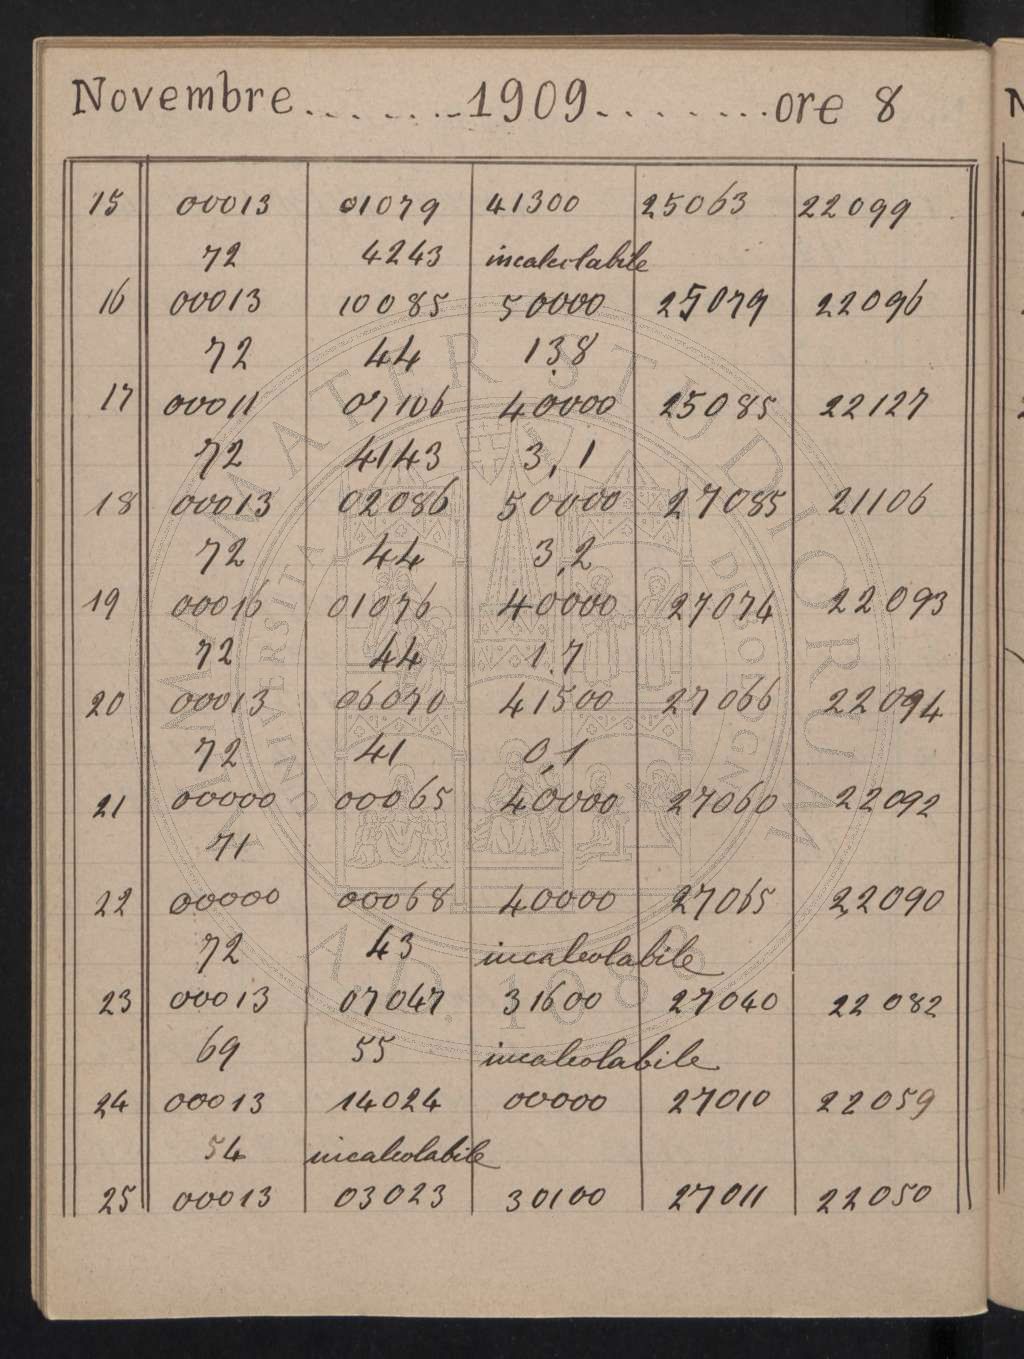 Novembre........1909........ore 8
15 00013 01079 41300 25063 22099
72 4243 incalcolabile
16 00013 10085 50000 25079 22096
72 44 13,8
17 00011 07106 40000 25085 22127
72 4143 3,1
18 00013 02086 50000 27085 21106
72 44 3,2
19 00016 01076 40000 27074 22093
72 44 1.7
20 00013 06070 41500 27066 22094
72 41 0,1
21 00000 00065 40000 27060 22092
71
22 00000 00068 40000 27065 22090
72 43 incalcolabile
23 00013 07047 31600 27040 22082
69 55 incalcolabile
24 00013 14024 00000 27010 22059
54 incalcolabile
25 00013 03023 30100 27011 22050
ALMA MATER STUDIORUM
UNIVERSITÀ DI BOLOGNA
A.D. 1088